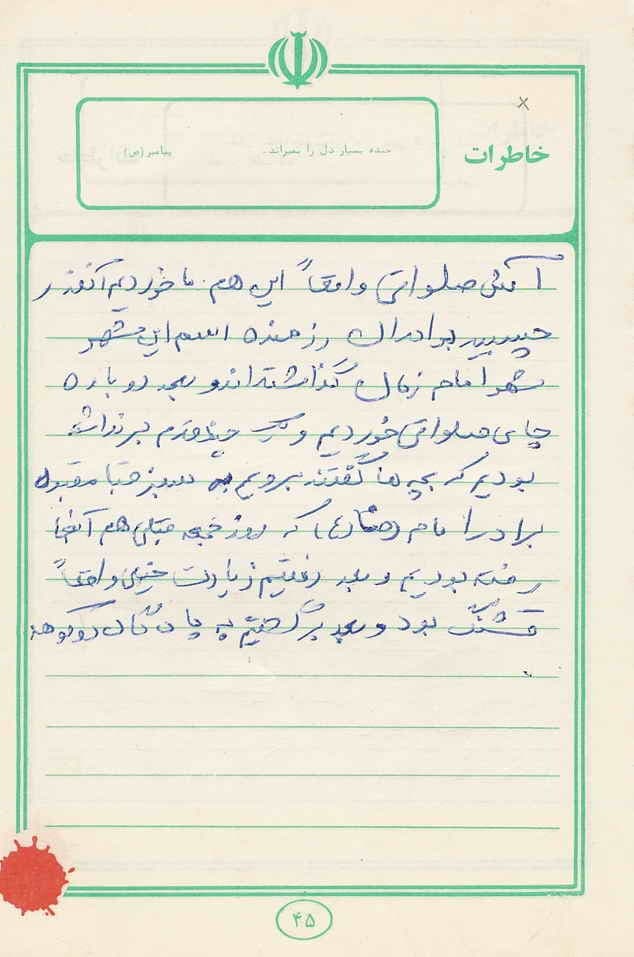 خاطرات
خنده بسیار دل را بمیراند. پیامبر (ص)
آش صلواتی واقعاً این هم ما خوردیم آنقدر
چسبید برادران رزمنده اسم این شهر
شهر امام زمان گذاشته‌اند و بعد دوباره
چای صلواتی خوردیم و یک چند قدم برنداشته
بودیم که بچه ها گفتند برویم به سبز قبا مقبره
برادر امام رضا (ع) که روز جمعه قبلی هم آنجا
رفته بودیم و بعد رفتیم زیارت خیلی واقعاً
قشنگ بود و بعد برگشتیم به پادگان دوکوهه
۴۵